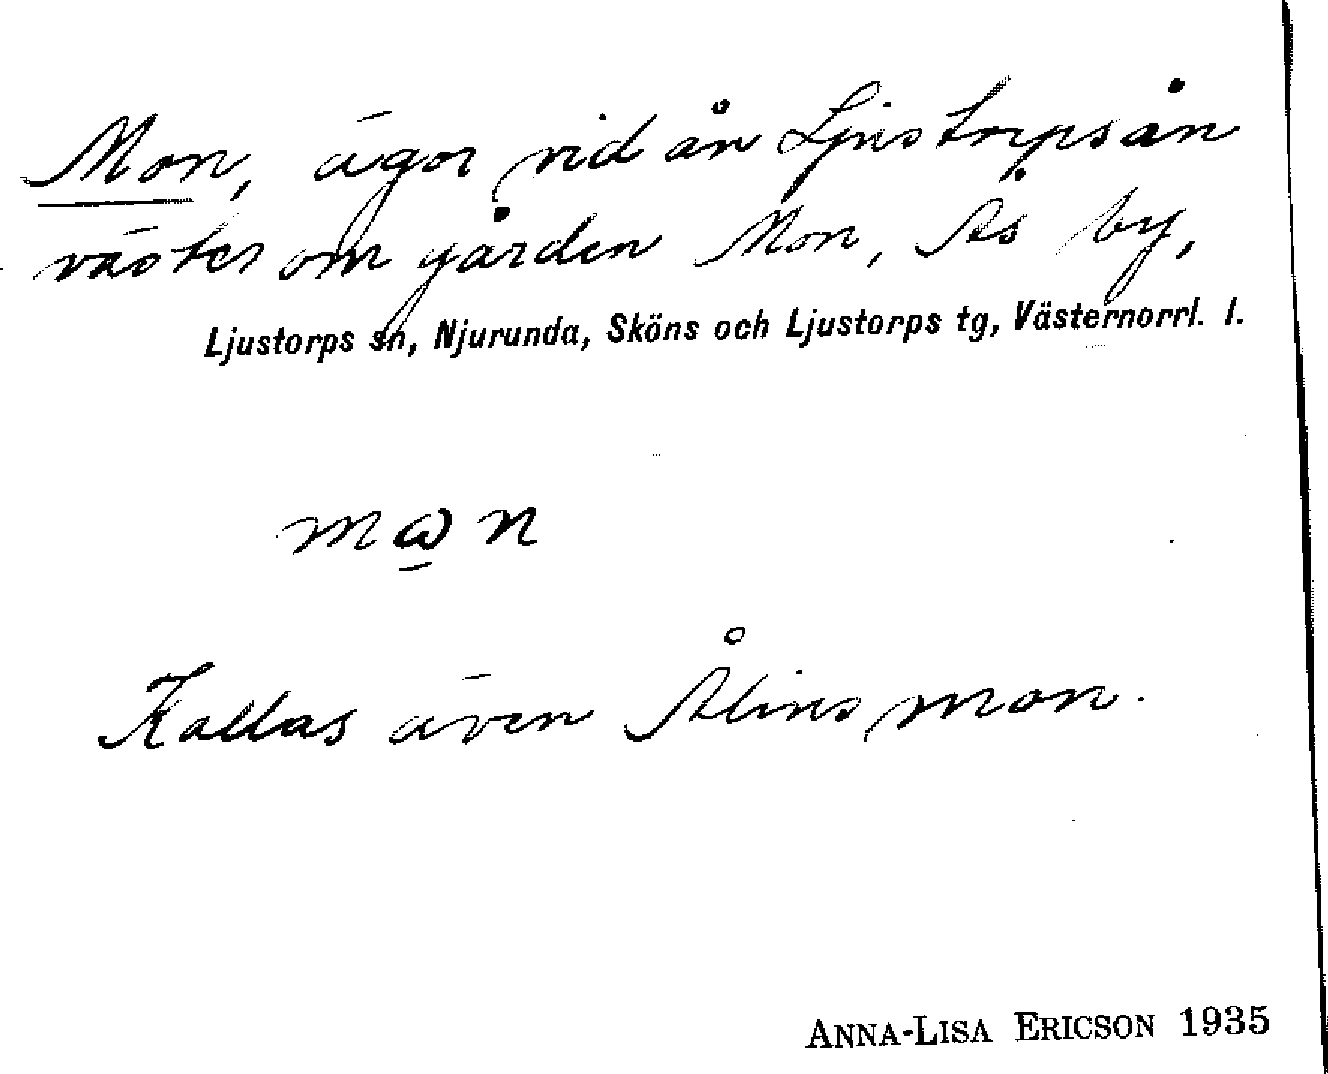 Mon, ägor vid ån Ljustorpsån
väster om gården Mon, Ås by,
Ljustorps sn, Njurunda, Sköns och Ljustorps tg, Västernorrl. l.
mωn
Kallas även Ålins mon.
ANNA-LISA ERICSON 1935